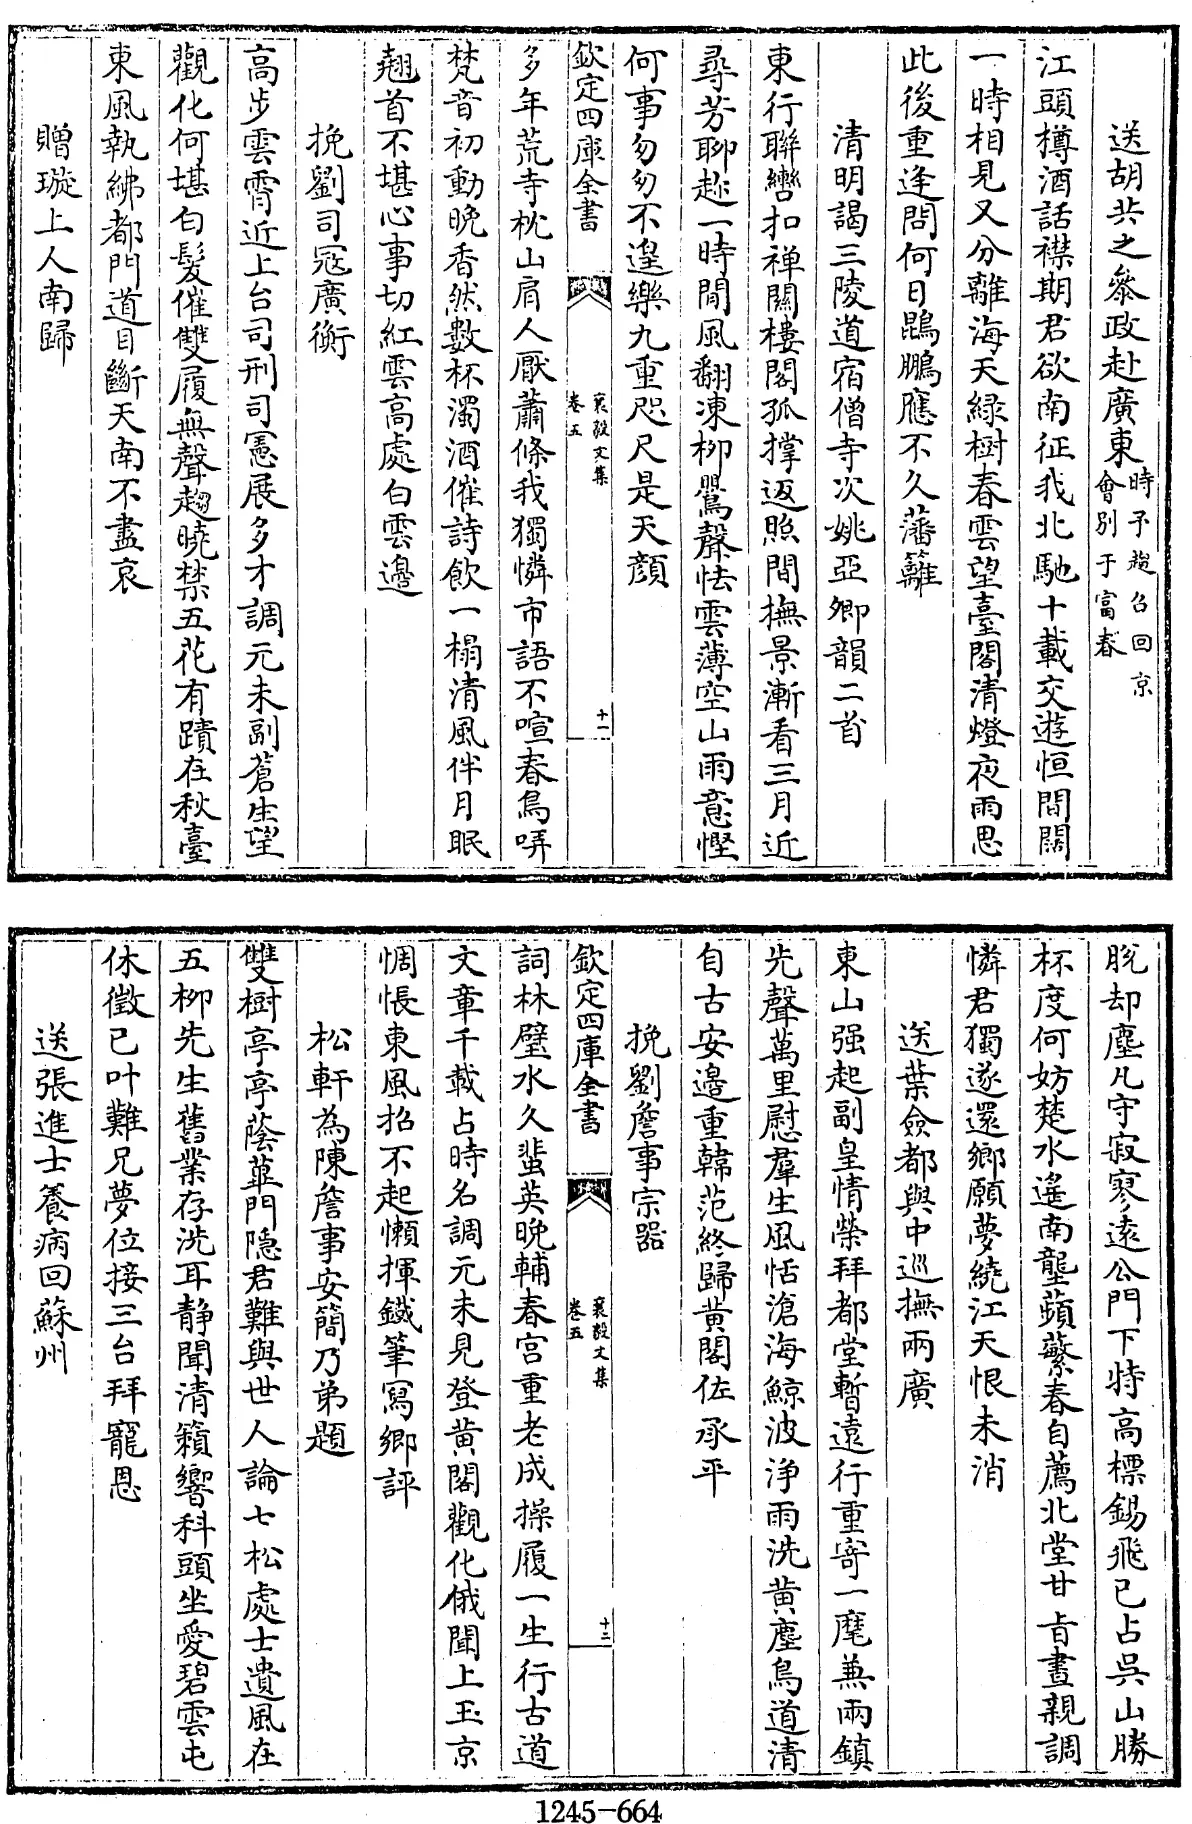 送胡共之參政赴廣東時予趨召回京會別于富春
江頭樽酒話襟期君欲南征我北馳十載交遊恒間闊
一時相見又分離海天綠樹春雲望臺閣清燈夜雨思
此後重逢問何日鵾鵬應不久藩籬
清明謁三陵道宿僧寺次姚亞卿韻二首
東行聯轡扣禪關樓閣孤撑返照間撫景漸看三月近
尋芳聊趂一時閒風翻凍柳鸎聲怯雲薄空山雨意慳
何事匆匆不遑樂九重咫尺是天顔
欽定四庫全書
襄毅文集
卷五
十一
多年荒寺枕山肩人厭蕭條我獨憐市語不喧春鳥哢
梵音初動晚香然數杯濁酒催詩飲一榻清風伴月眠
翹首不堪心事切紅雲高處白雲邊
挽劉司寇廣衡
高步雲霄近上台司刑司憲展多才調元未副蒼生望
觀化何堪白髮催雙履無聲趨曉禁五花有蹟在秋臺
東風執紼都門道目斷天南不盡哀
贈璇上人南歸
脫却塵凡守寂寥遠公門下特高標錫飛已占吳山勝
杯度何妨楚水遙南壟蘋蘩春自薦北堂甘旨晝親調
憐君獨遂還鄉願夢繞江天恨未消
送葉僉都與中巡撫兩廣
東山强起副皇情榮拜都堂暫遠行重寄一麾兼兩鎮
先聲萬里慰羣生風恬滄海鯨波浄雨洗黄塵鳥道清
自古安邊重韓范終歸黄閣佐承平
挽劉詹事宗器
欽定四庫全書
襄毅文集
卷五
十二
詞林璧水久蜚英晚輔春宫重老成操履一生行古道
文章千載占時名調元未見登黄閣觀化俄聞上玉京
惆悵東風招不起懶揮鐵筆寫鄉評
松軒為陳詹事安簡乃弟題
雙樹亭亭蔭蓽門隠君難與世人論七松處士遺風在
五柳先生舊業存洗耳静聞清籟響科頭坐愛碧雲屯
休徵已叶難兄夢位接三台拜寵恩
送張進士養病回蘇州
1245-664